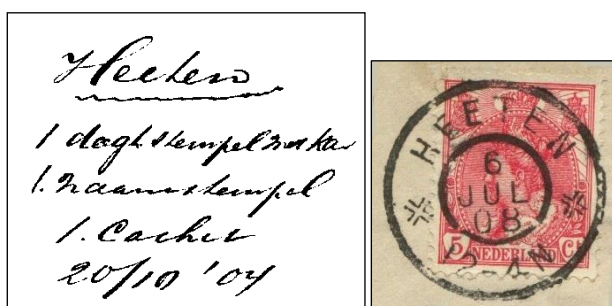 Heeten
1 dagtstempel met kar
1. naamstempel
1. Cachet
20/10 '04
HEETEN
6
JUL
08
12-AN
5 NEDERLAND Ct